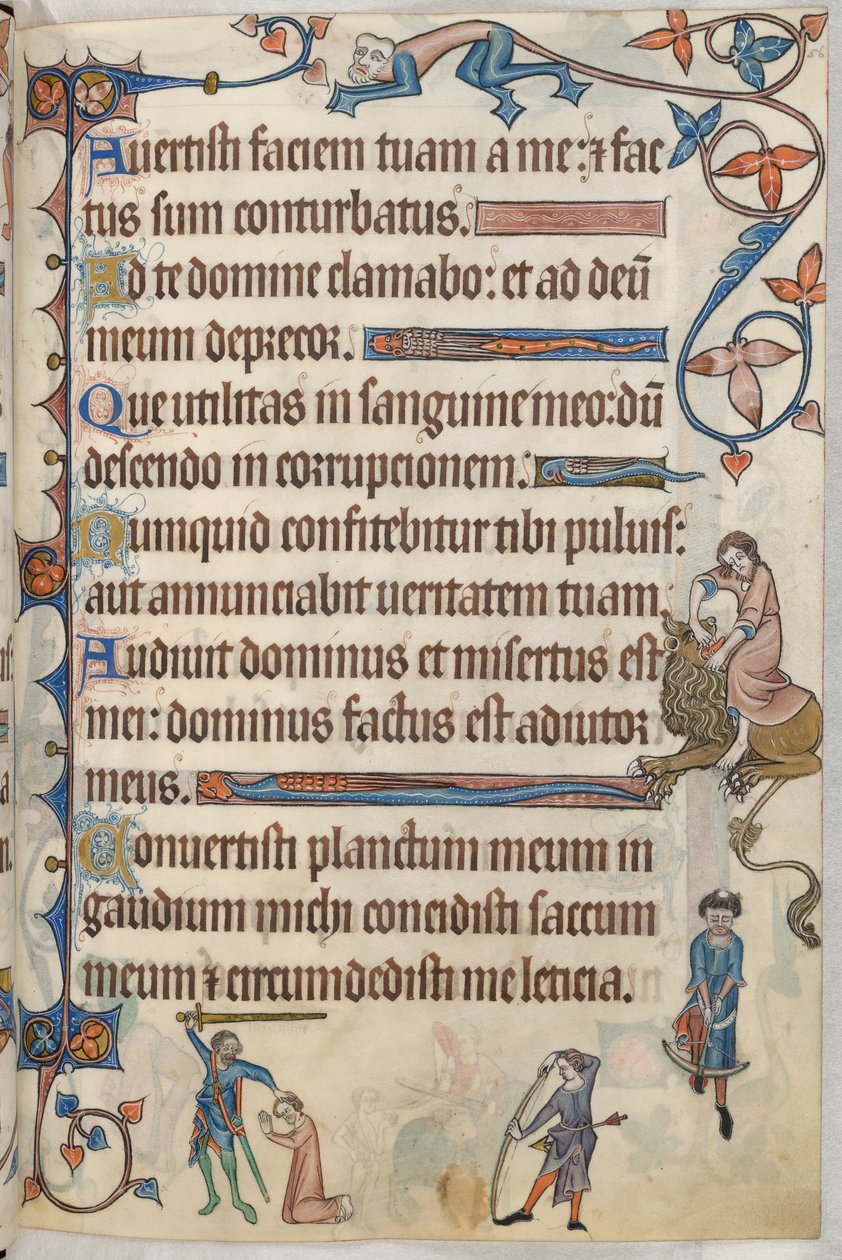 Auertisti faciem tuam a me: ⁊ fac
tus sum conturbatus.
Ad te domine clamabo: et ad deū
meum deprecor.
Que utilitas in sanguine meo: dū
descendo in corrupcionem.
Numquid confitebitur tibi puluis:
aut annunciabit ueritatem tuam.
Audiuit dominus et misertus est
mei: dominus factus est adiutor
meus.
Conuertisti planctum meum in
gaudium michi concidisti saccum
meum ⁊ circumdedisti me leticia.
56